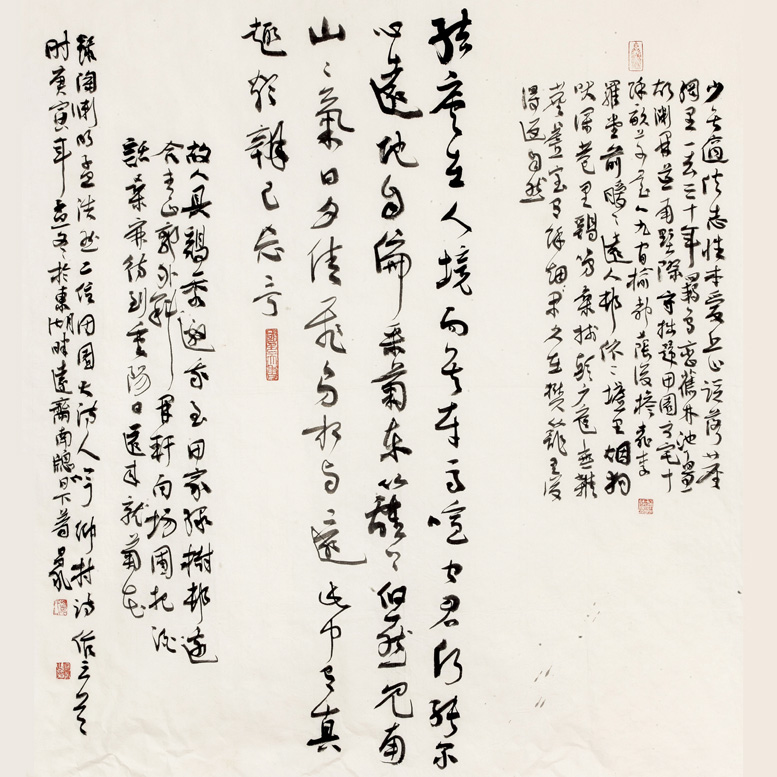 少無適俗志性本愛丘山誤落塵
網里一去三十年羈鳥戀舊林池魚思
故淵開荒南野際守拙歸園田方宅十
餘畝草屋八九間榆柳蔭後檐桃李
羅堂前曖〻遠人村依〻墟里烟狗
吠深巷里鷄鳴桑樹顛戶庭無雜
塵虛室有餘閒久在樊籠里復
得返自然
結廬在人境而無車馬喧問君何能爾
心遠地自偏采菊東籬下悠然見南
山〻氣日夕佳飛鳥相與還此中有真
趣欲辨已忘言
故人具鷄黍邀我至田家綠樹村邊
合青山郭外斜開軒向場圃把酒
話桑麻待到重陽日還來就菊花
錄陶淵明孟浩然二位田園大詩人吟鄉村詩作三首
時庚寅年孟冬於東湖畔遠齋南牕日下